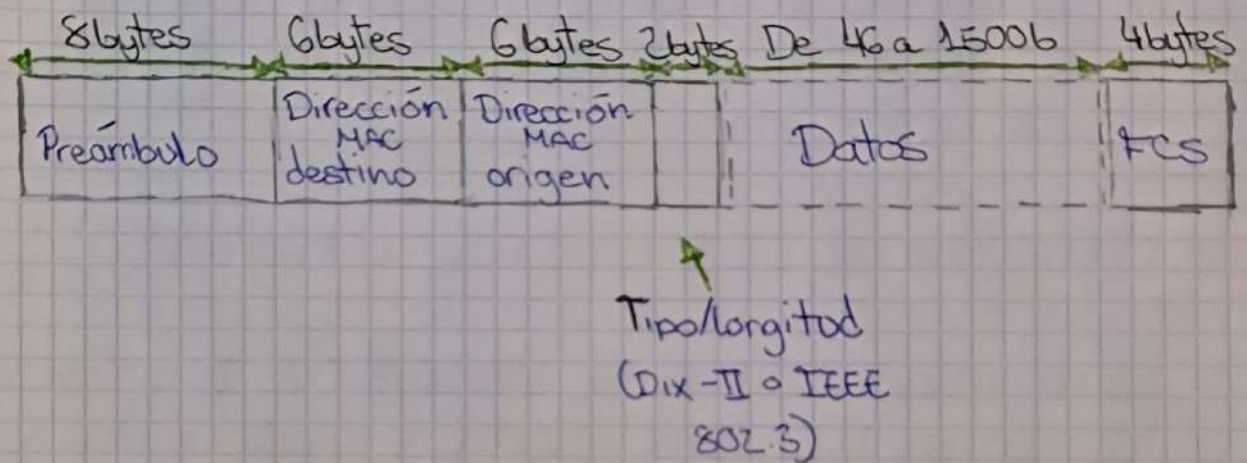 8bytes 6bytes 6bytes 2bytes De 46 a 1500b 4bytes
Preámbulo
Dirección
MAC
destino
Dirección
MAC
origen
Datos
FCS
Tipo/longitod
(Dix-II o IEEE
802.3)